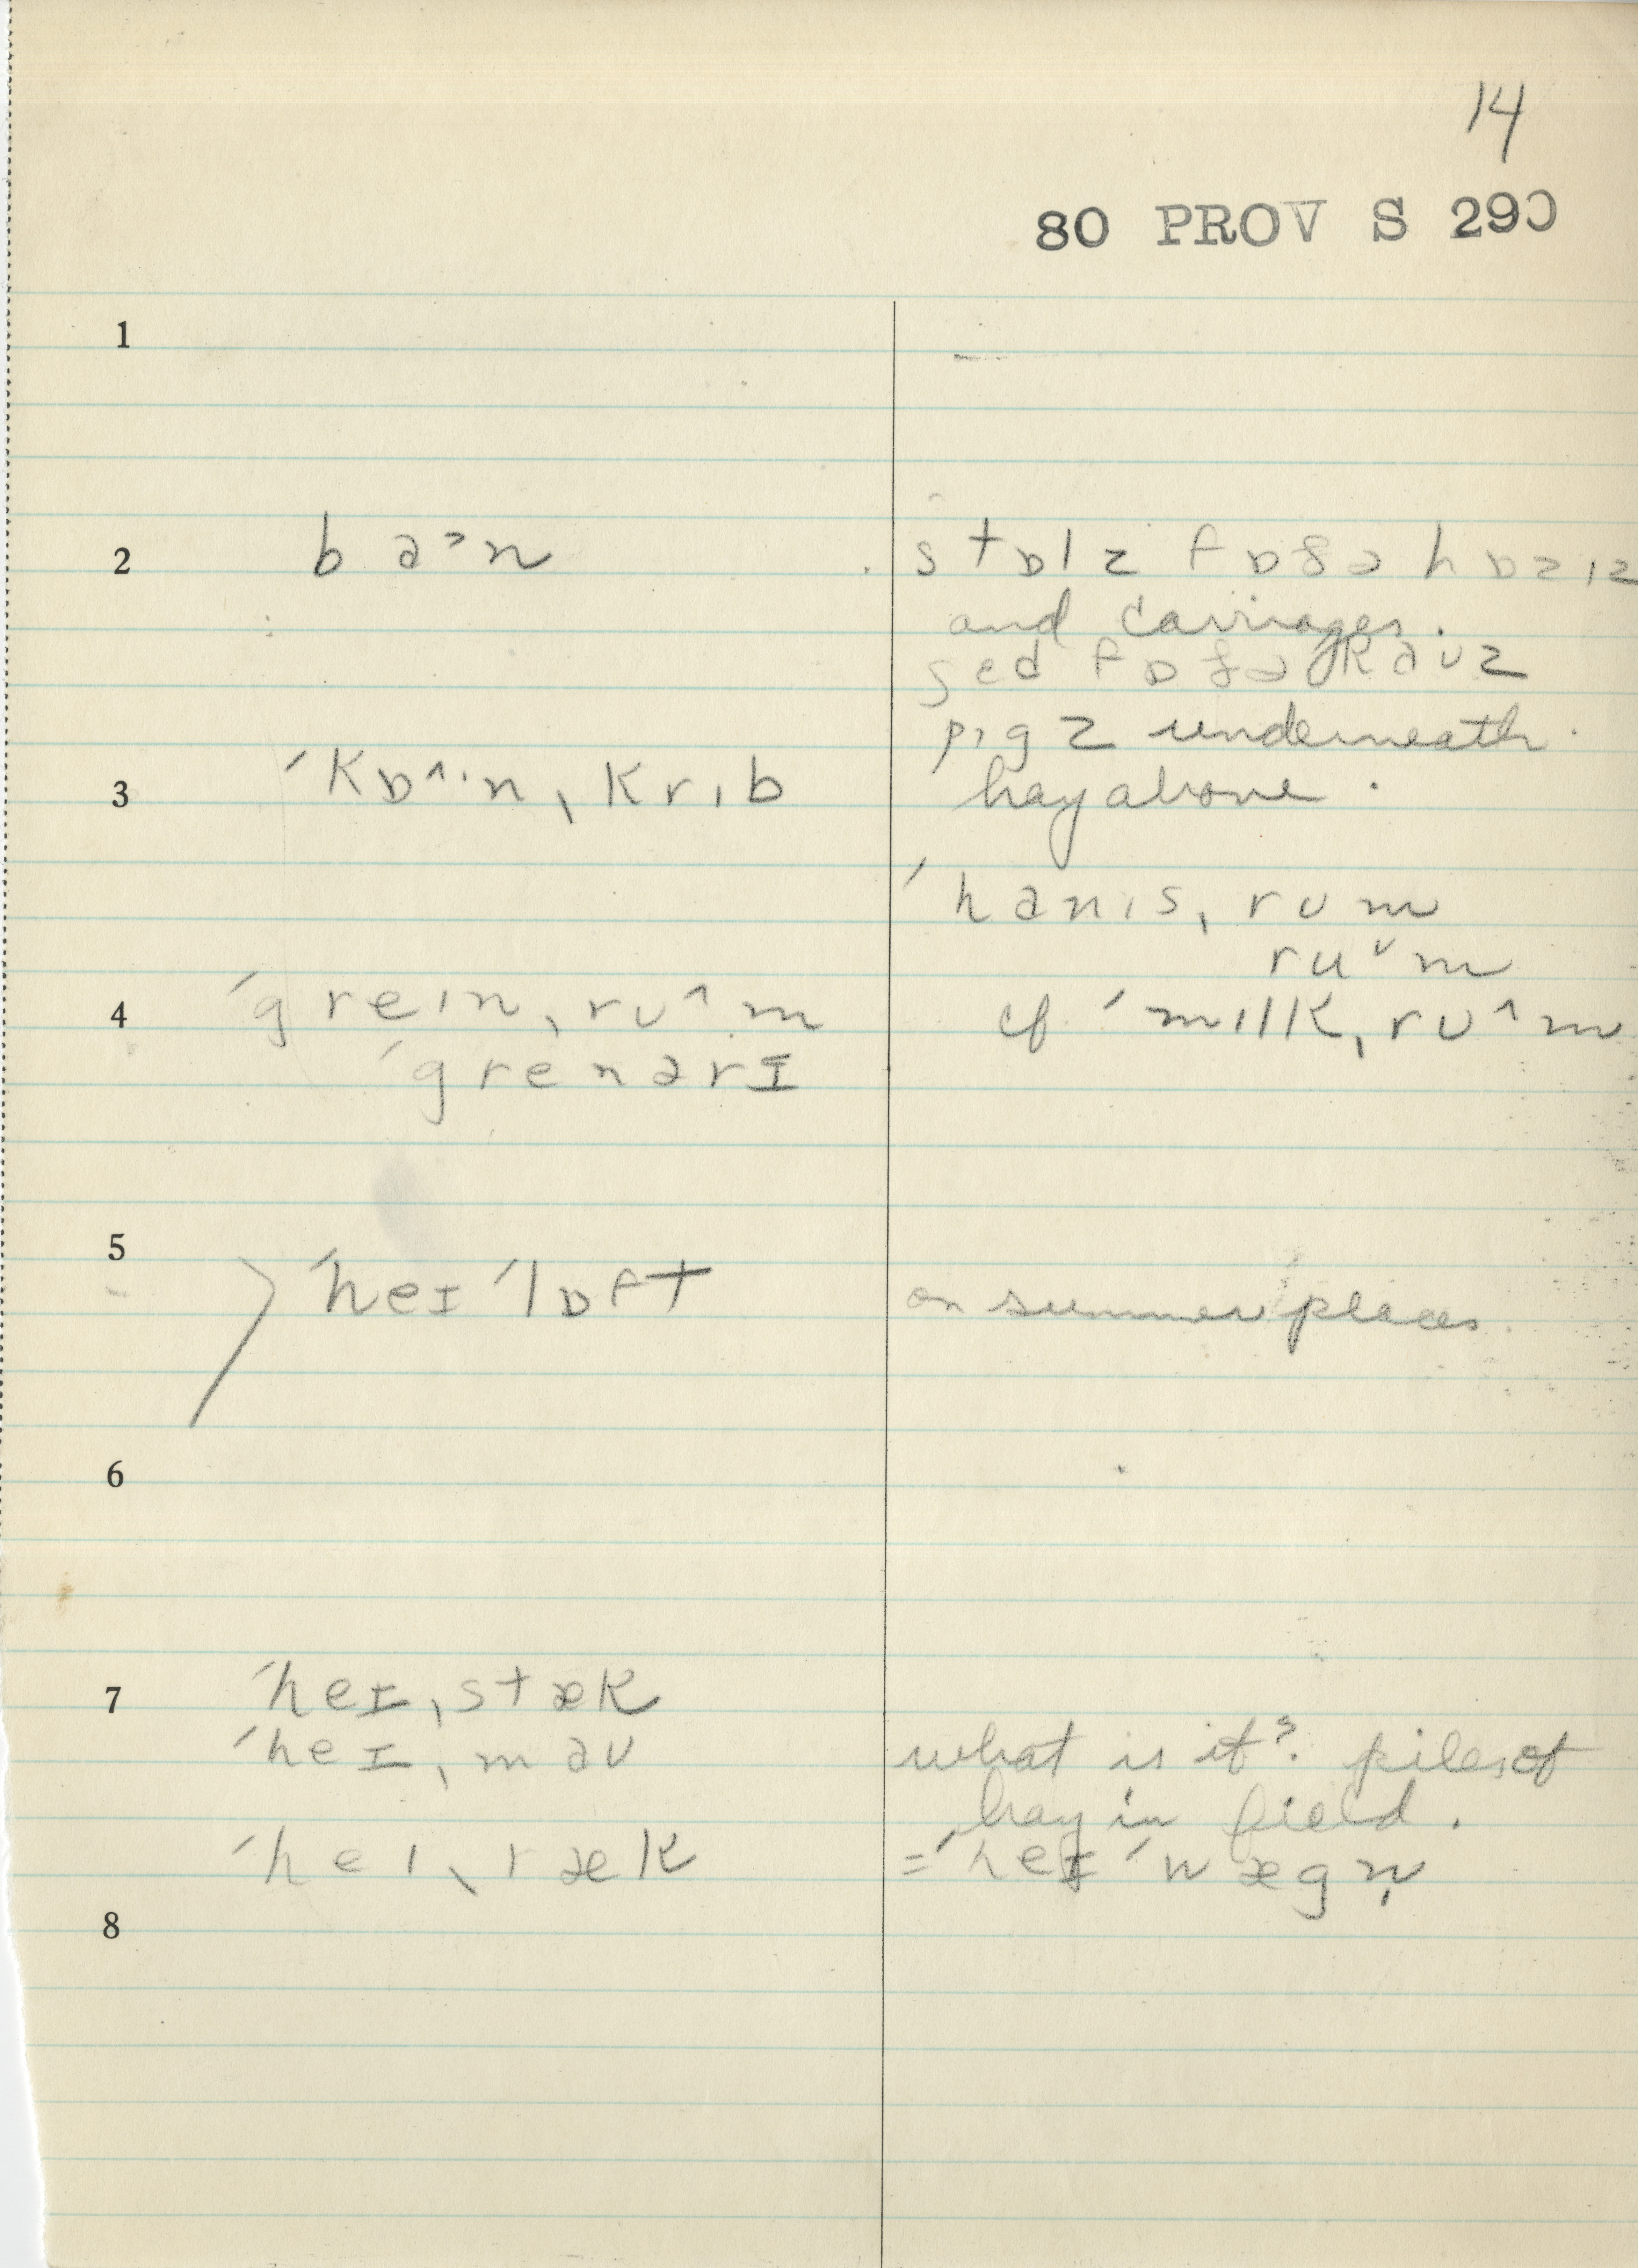 14
80 PROV S 290
1
2 b a˃n stɒlz fɒðə hɒsɪz
and carriages.
ʃed fɒðə kauz
pɪgz underneath.
3 ˈkɒ^·nˌkrɪb hay above.
ˈhanɪsˌrʊm
ruˇm
4 ˈgreɪnˌrʊ^m cf ˈmɪlkˌrʊ^m
ˈgrenərɪ
5 ˈheɪ ˈlɒft on summer places
6
7 ˈheɪˌstæk
ˈheɪˌmaʊ what is it? piles of
hay in field.
ˈheɪˌræk = ˈheɪ ˈwægn̩
8